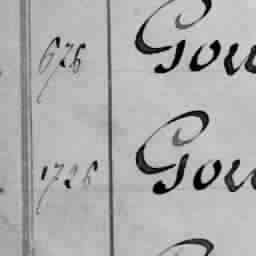 676 Gou
1726 Gou